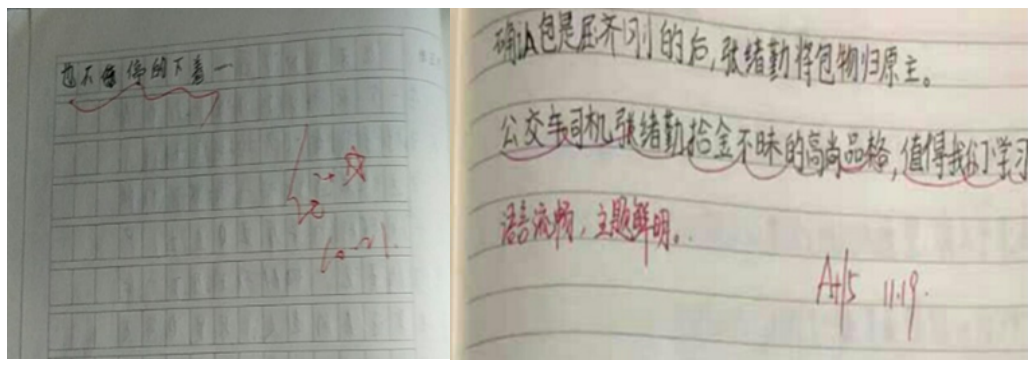 也不停的下着一
确认包是屈济刚的后,张绪勤将包物归原主。
公交车司机张绪勤拾金不昧的高尚品格,值得我们学习
语言流畅,主题鲜明。
A+15 11.19.